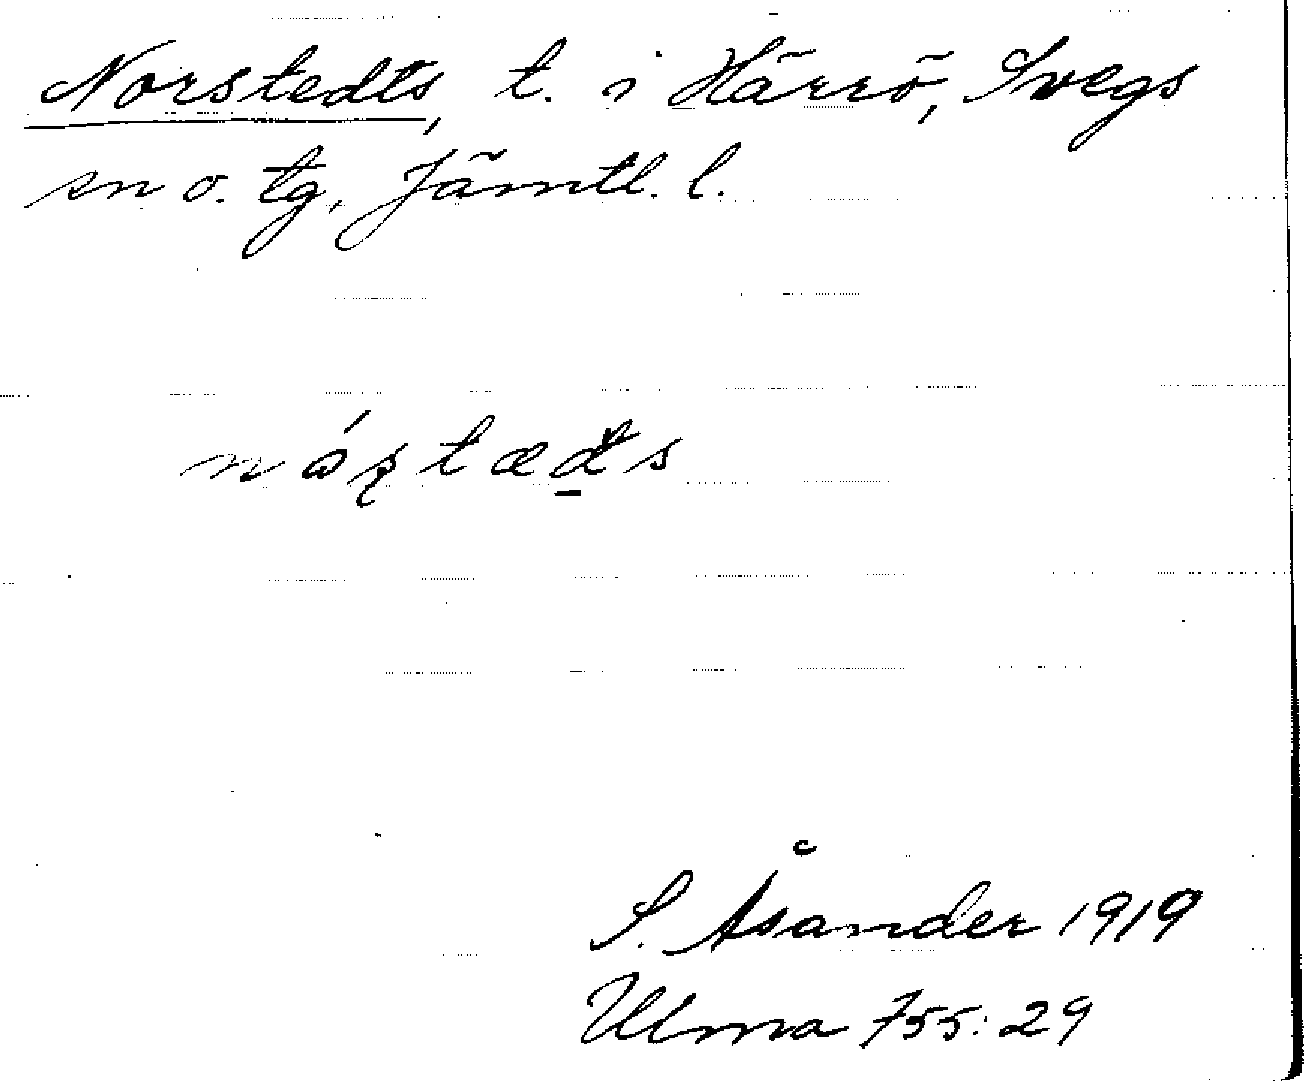 Norstedts, t. i Härrö, Svegs
sn o. tg, Jämtl. l.
S. Åsander 1919
Ulma 755:29